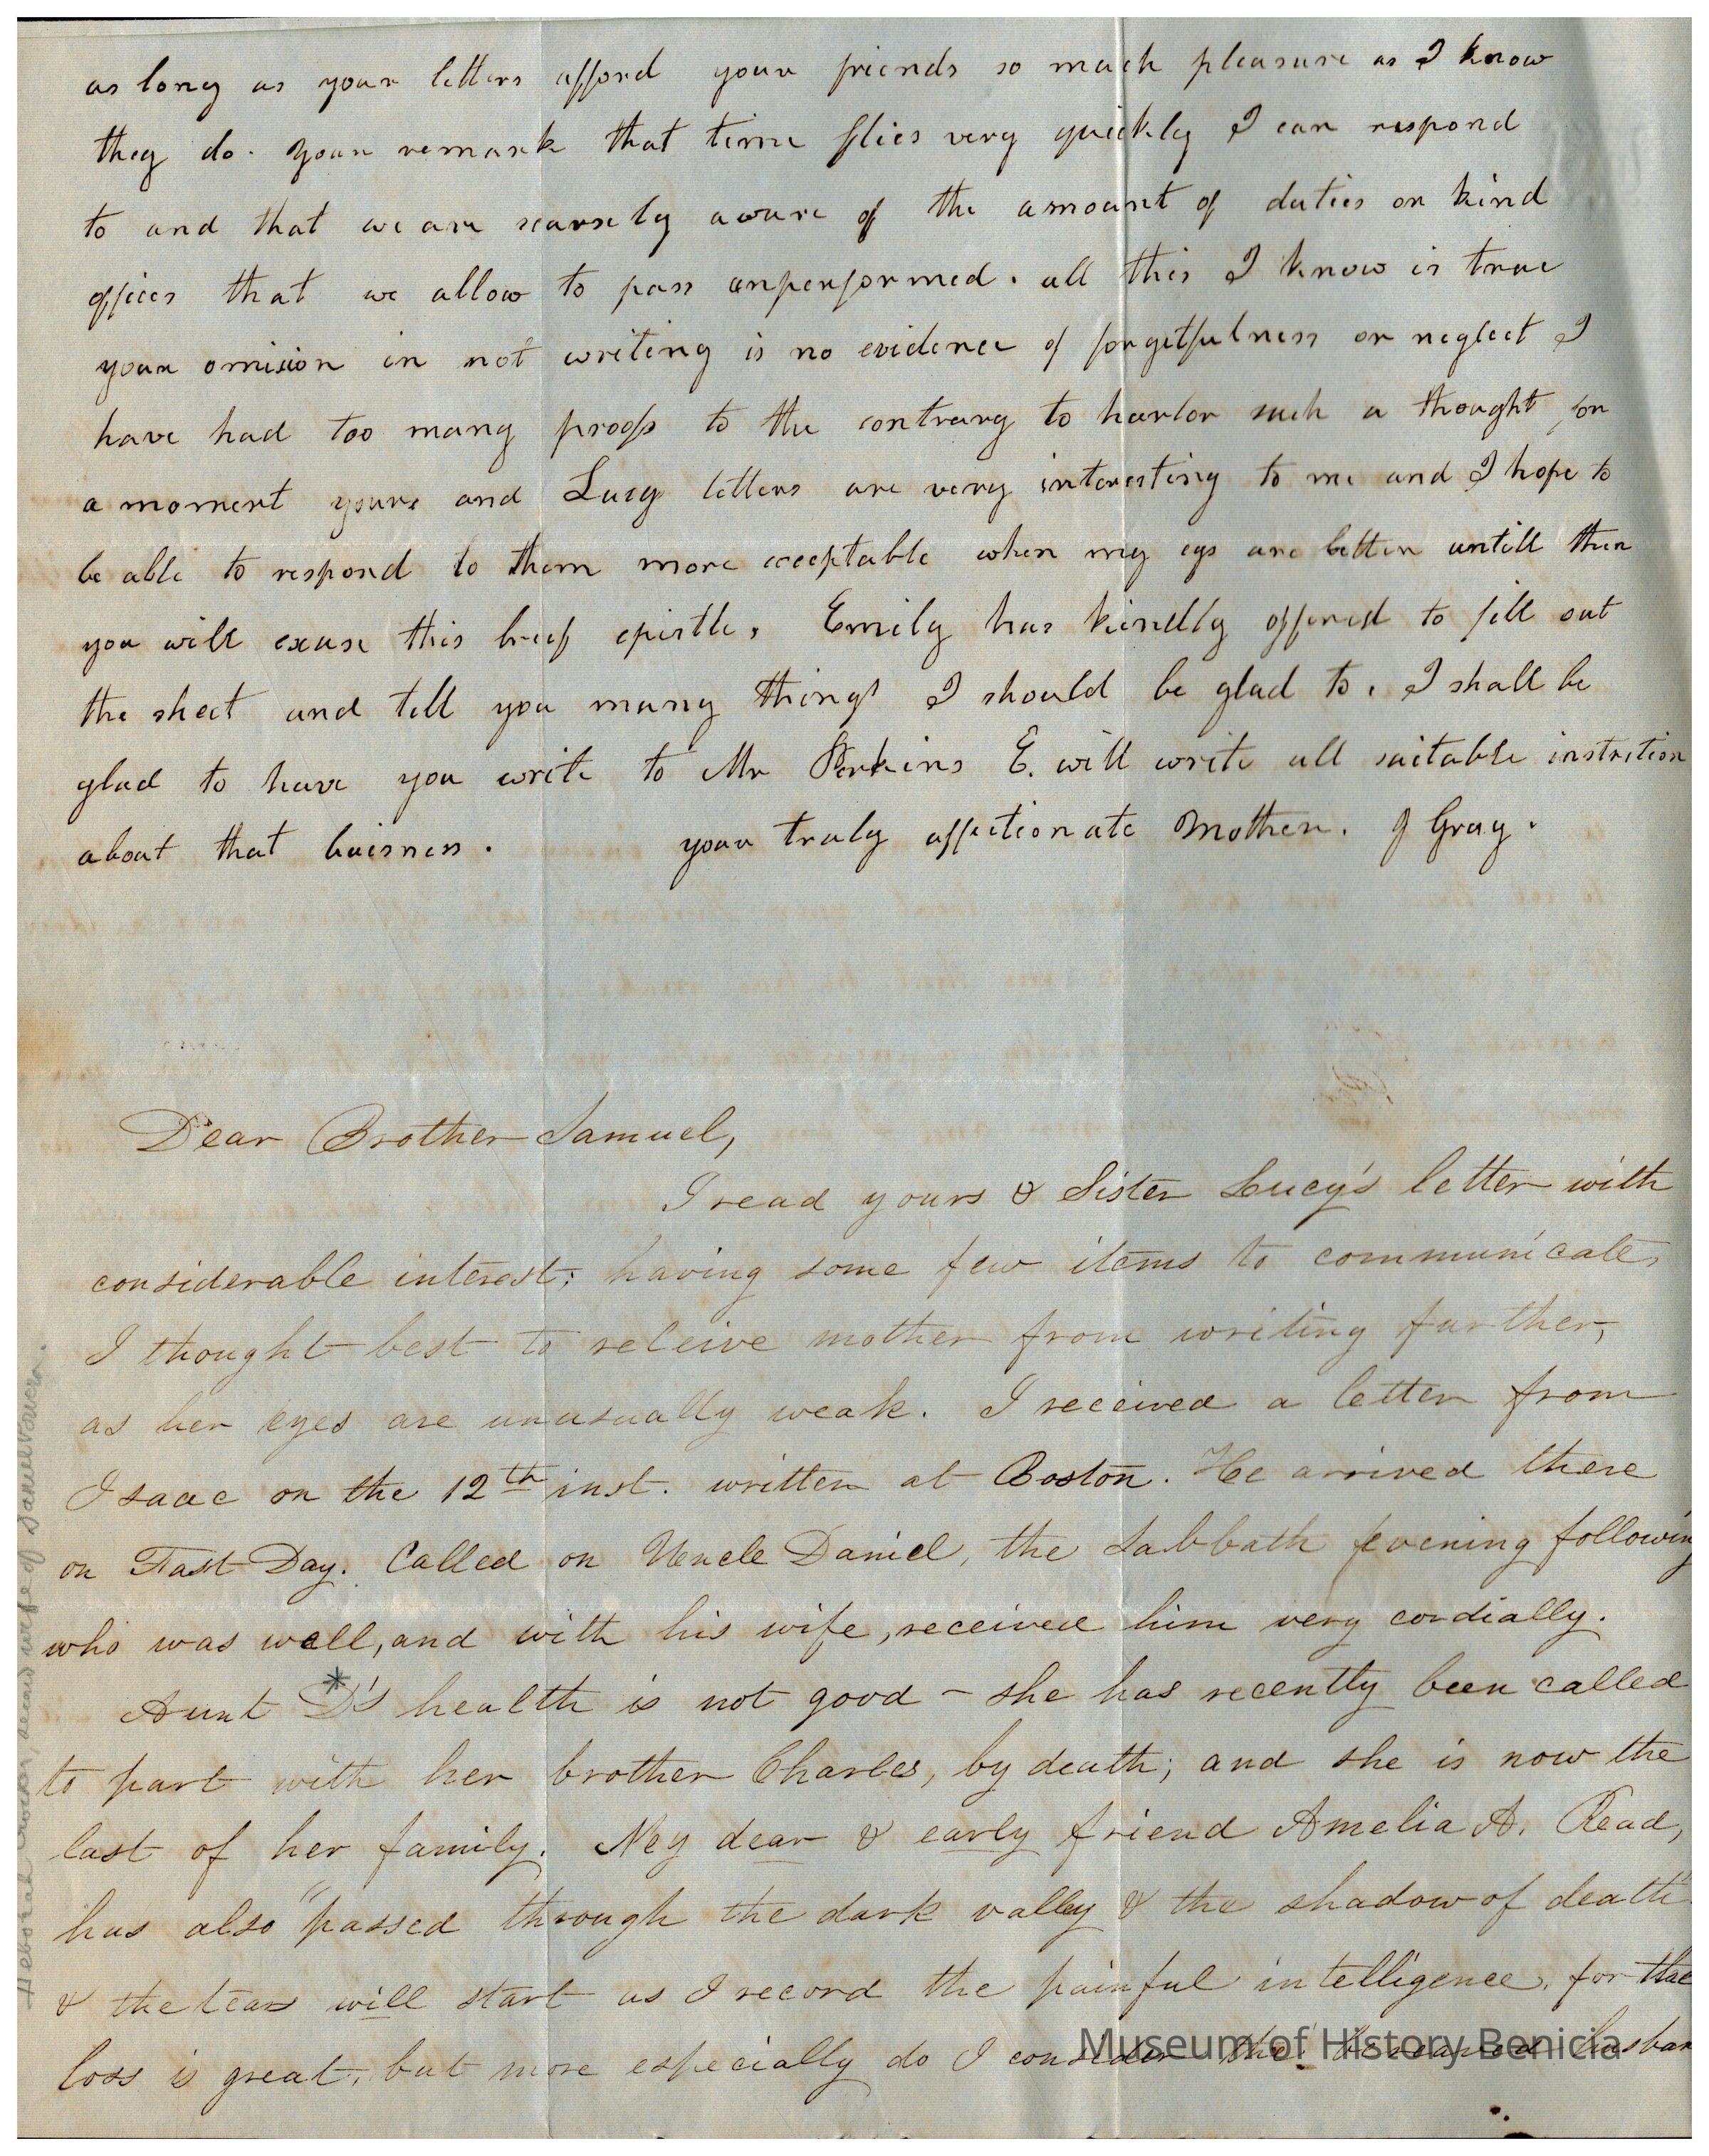 as long as your letters afford your friends so much pleasure as I know
they do. your remark that time flies very quickly I can respond
to and that we are scarsely aware of the amount of duties or kind
offices that we allow to pass unperformed. all this I know is true
your omision in not writing is no evidence of forgetfulness or neglect I
have had too many proofs to the contrary to harbor such a thought for
a moment yours and Lucy letters are very interesting to me and I hope to
be able to respond to them more acceptable when my eys are better untill then
you will excuse this brief epistle. Emily has kindly offered to fill out
the sheet and tell you many things I should be glad to. I shall be
glad to have you write to Mr Perkins E. will write all suitable instrction
about that buisness. your truly affectionate Mother. J Gray.
Dear Brother Samuel,
I read yours & Sister Lucy's letter with
considerable interest; having some few items to communicate,
I thought best to releive mother from writing further,
as her eyes are unusually weak. I received a letter from
Isaac on the 12th inst. written at Boston. He arrived there
on Fast Day. Called on Uncle Daniel, the Sabbath evening following
who was well, and with his wife, received him very cordially.
Aunt D's* health is not good - she has recently been called
to part with her brother Charles, by death; and she is now the
last of her family. My dear & early friend Amelia A. Read,
has also "passed through the dark valley & the shadow of death"
& the tears will start as I record the painful intelligence, for the
loss is great, but more especially do I consider the bereaved husban
Deborah wife of Samuel
Museum of History Benicia